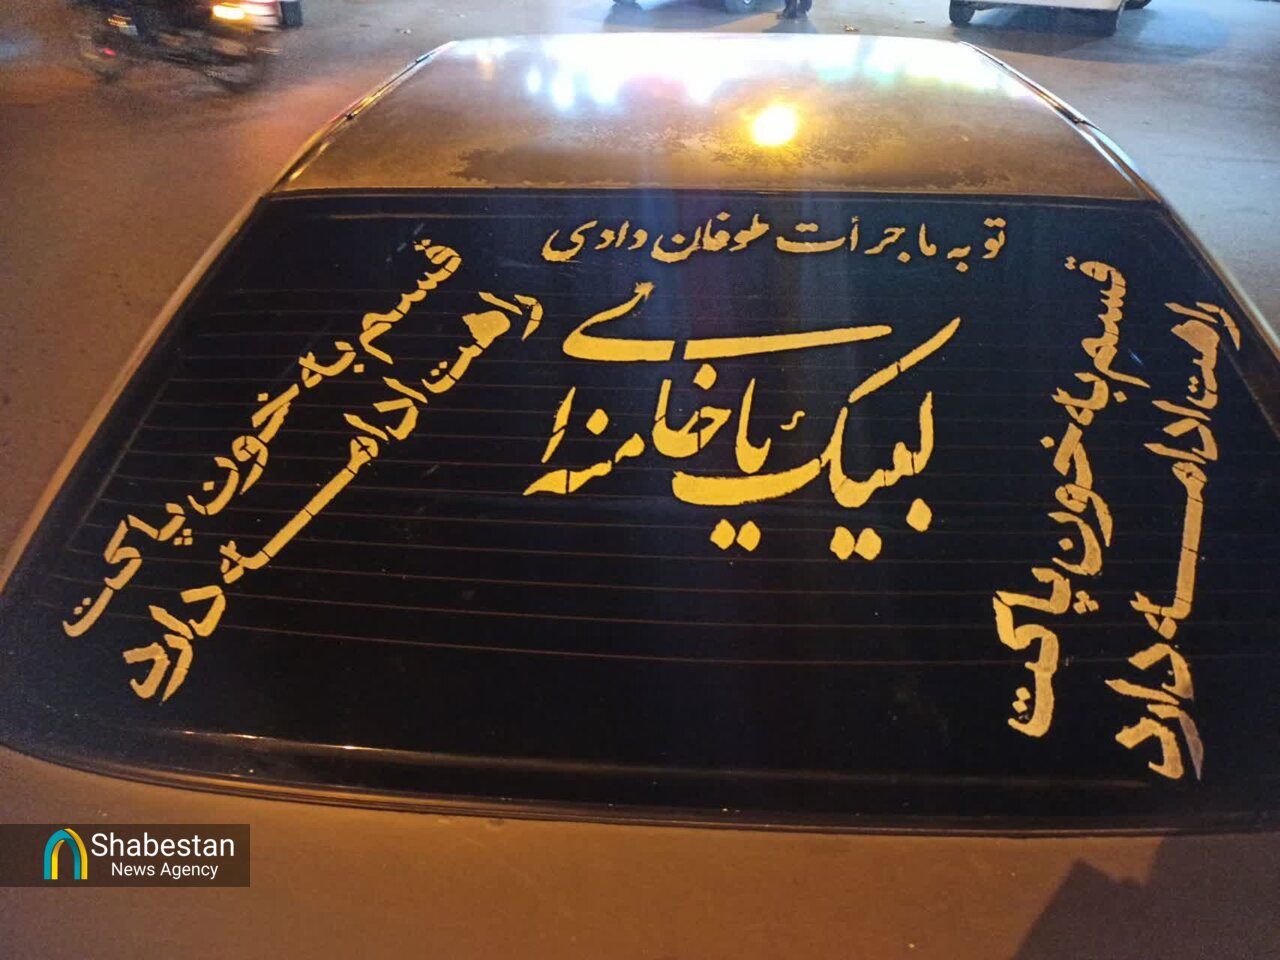 تو به ما جرأت طوفان دادی
لبیک یا خامنه ای
قسم به خون پاکت
راهت ادامه دارد
قسم به خون پاکت
راهت ادامه دارد
Shabestan
News Agency